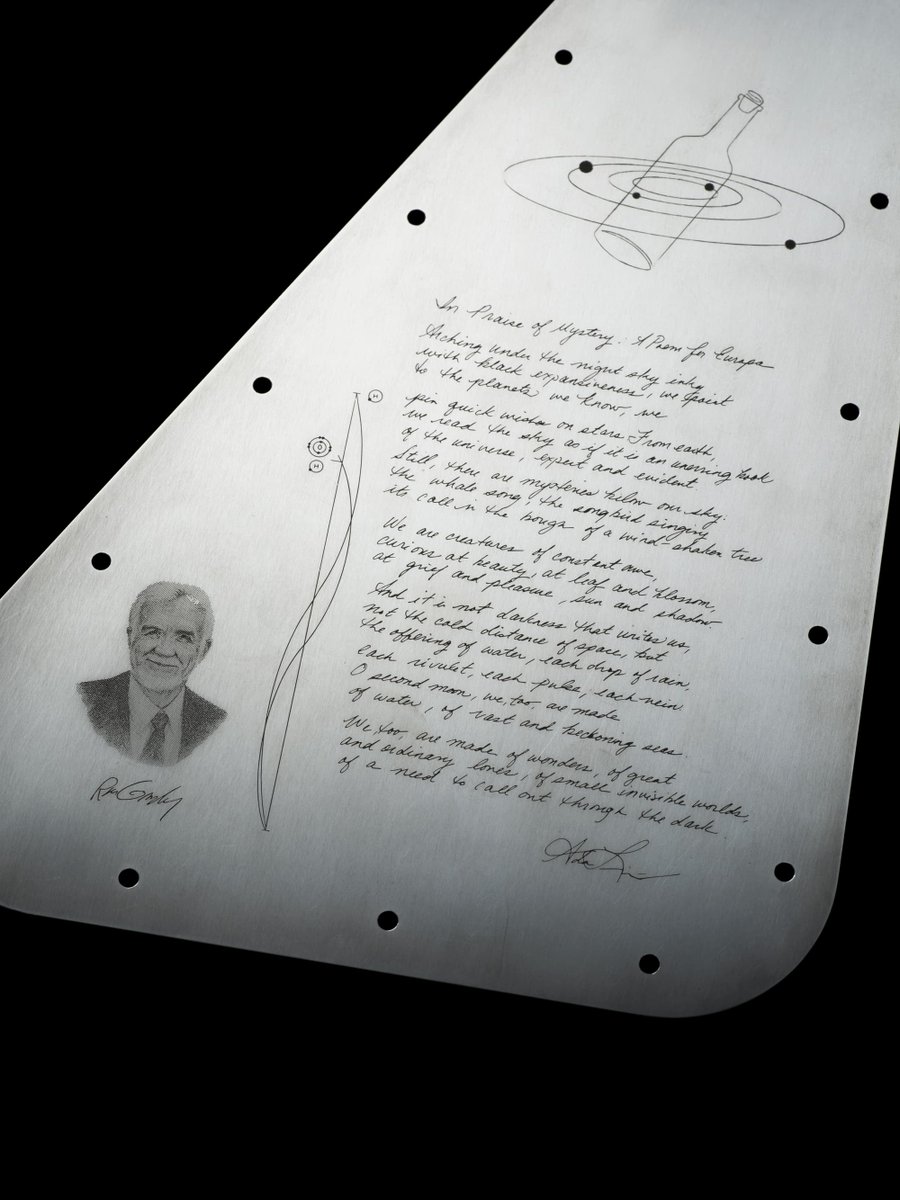 In Praise of Mystery: A Poem for Europa
Arching under the night sky inky
with black expansiveness, we point
to the planets we know, we
pin quick wishes on stars. From earth,
we read the sky as if it is an unerring book
of the universe, expert and evident.
Still, there are mysteries below our sky:
the whale song, the songbird singing
its call in the bough of a wind-shaken tree
We are creatures of constant awe,
curious at beauty, at leaf and blossom,
at grief and pleasure, sun and shadow.
And it is not darkness that unites us,
not the cold distance of space, but
the offering of water, each drop of rain,
each rivulet, each pulse, each vein.
O second moon, we, too, are made
of water, of vast and beckoning seas.
We, too, are made of wonders, of great
and ordinary loves, of small invisible worlds,
of a need to call out through the dark.
Ada
H
O
H